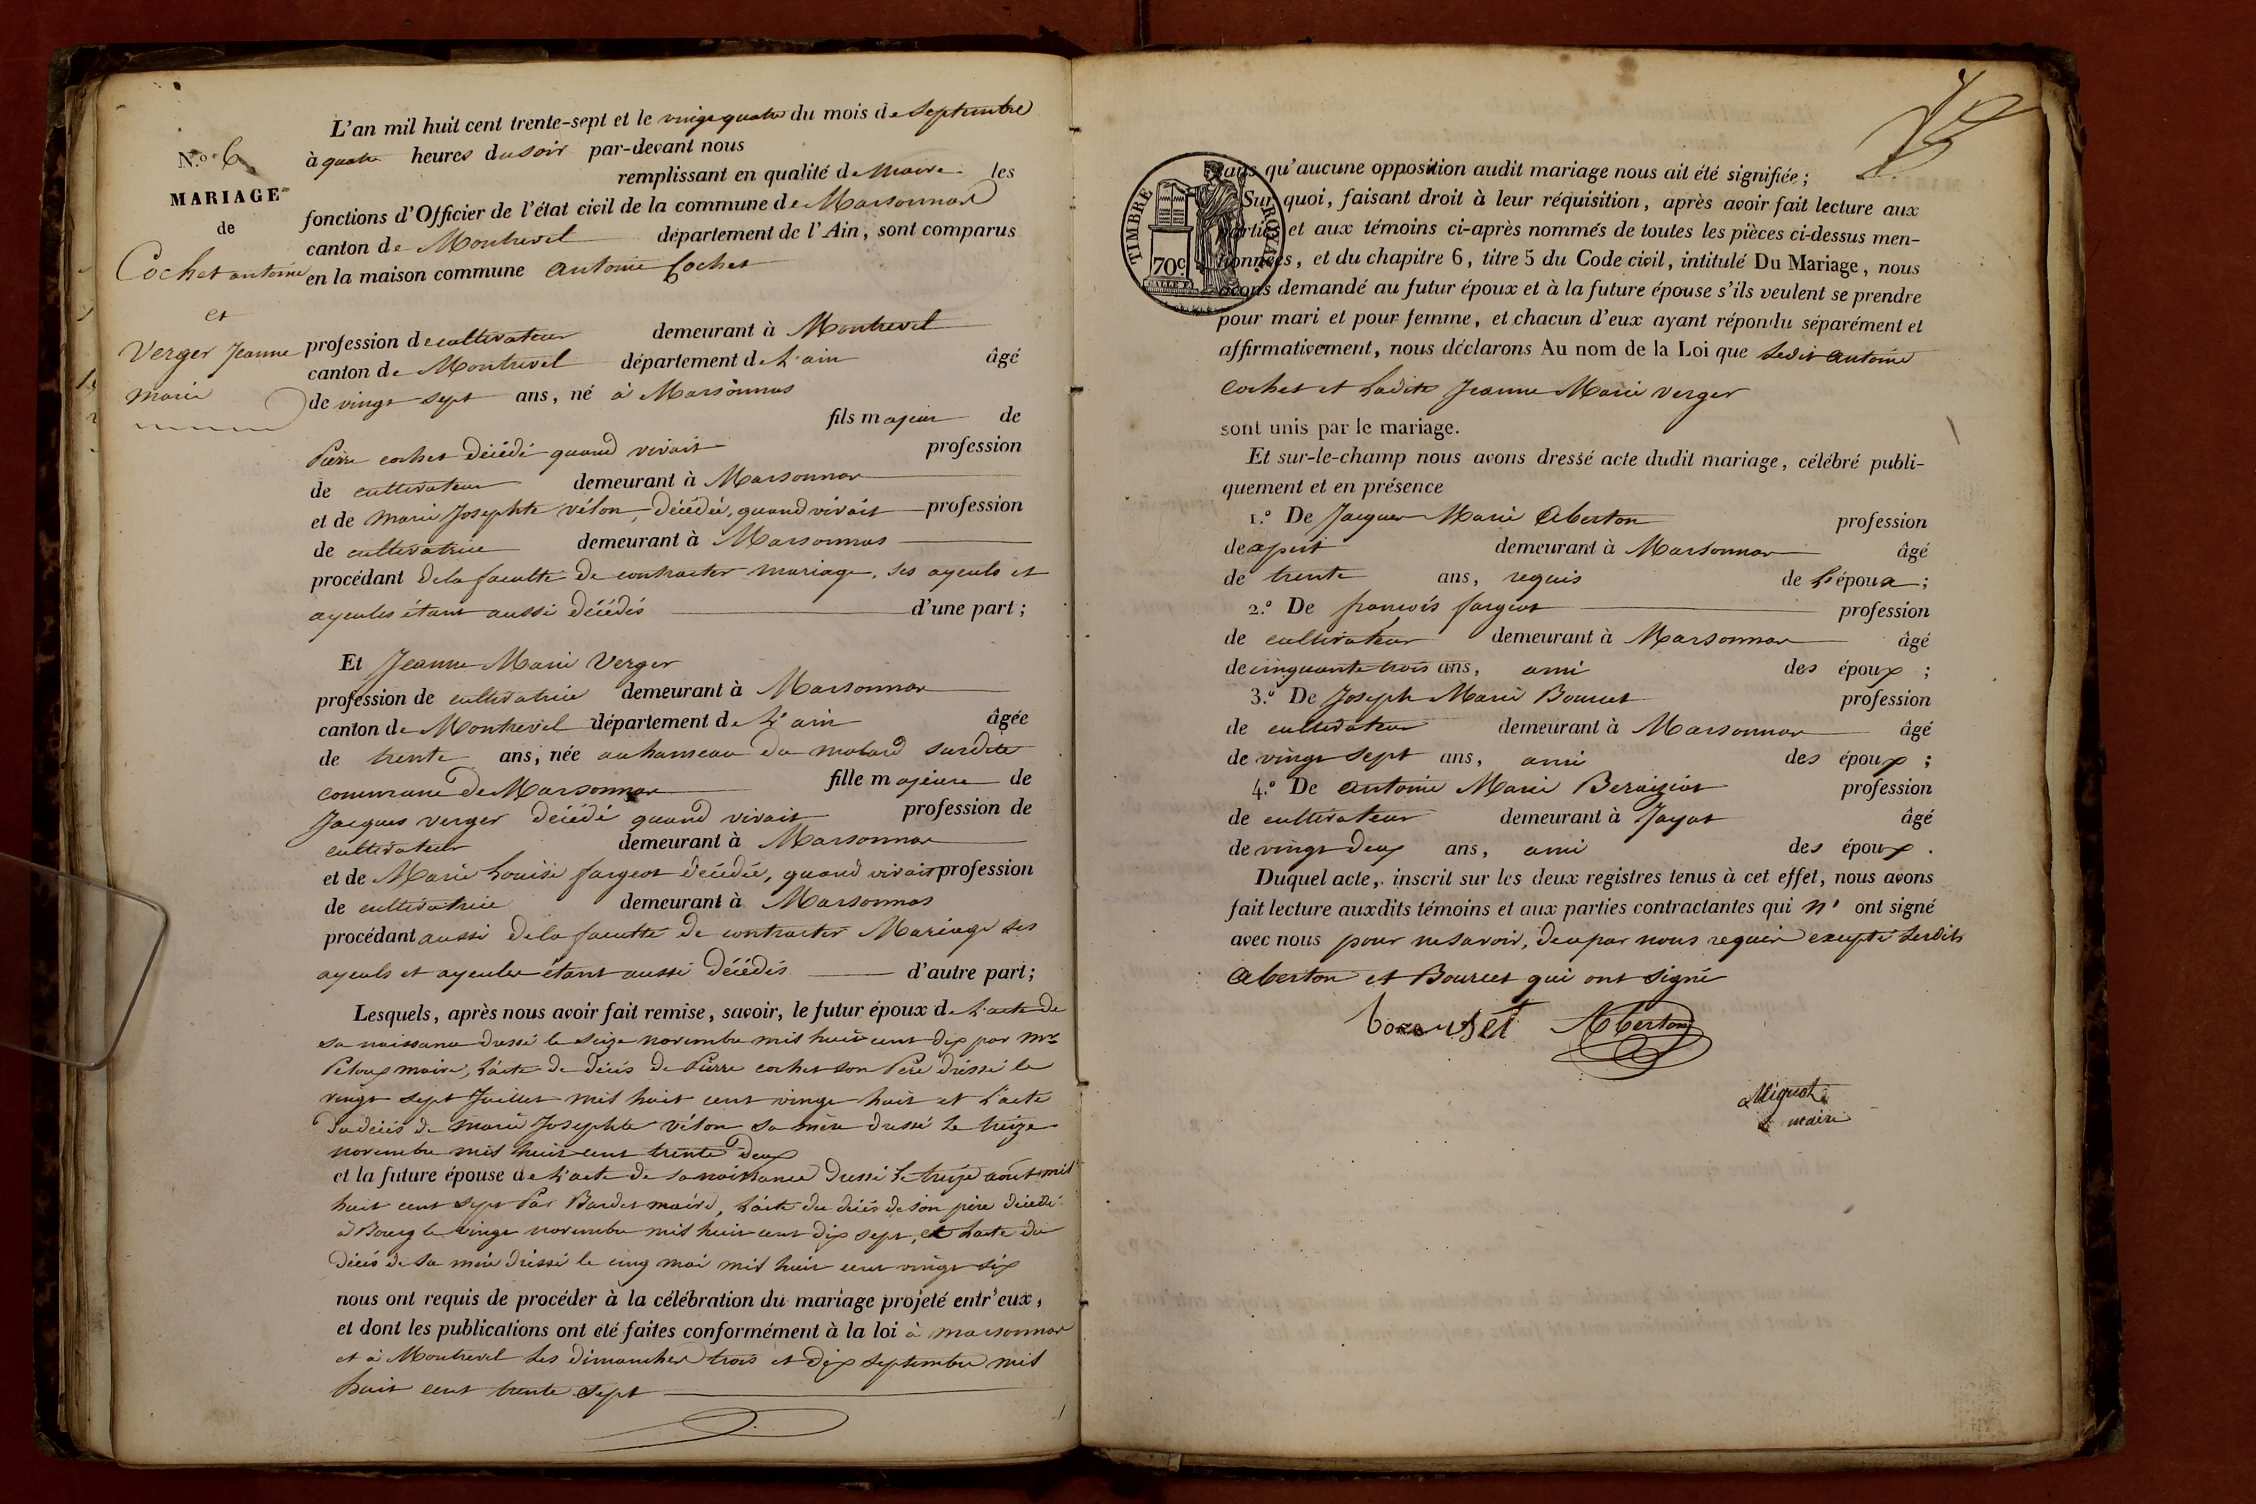 N.º 6
MARIAGE
de
Cochet antoine
et
Verger Jeanne
marie
L'an mil huit cent trente-sept et le vingt quatre du mois de Septembre
à quatre heures du soir par-devant nous
remplissant en qualité de Maire les
fonctions d'Officier de l'état civil de la commune de Marsonnas
canton de Montrevel département de l'Ain, sont comparus
en la maison commune antoine Cochet
profession de cultivateur demeurant à Montrevel
canton de Montrevel département de L'ain âgé
de vingt sept ans, né à Marsonnas
fils majeur de
Pierre cochet décédé quand vivait profession
de cultivateur demeurant à Marsonnas
et de Marie Josephte vélon, décédée, quand vivait profession
de cultivatrice demeurant à Marsonnas
procédant de la faculté de contracter mariage, ses ayeuls et
ayeules étant aussi décédés d'une part ;
Et Jeanne Marie Verger
profession de cultivatrice demeurant à Marsonnas
canton de Montrevel département de L'ain âgée
de trente ans, née au hameau du molard surdite
commune de Marsonnas fille majeure de
Jacques verger décédé quand vivait profession de
cultivateur demeurant à Marsonnas
et de Marie Louise fargeot décédée, quand vivait profession
de cultivatrice demeurant à Marsonnas
procédant aussi de la faculté de contracter Mariage ses
ayeuls et ayeules étant aussi décédés d'autre part ;
Lesquels, après nous avoir fait remise, savoir, le futur époux de L'acte de
sa naissance dressé le seize novembre mil huit cent dix par Mr
Péloux maire, L'acte de décès de Pierre cochet son Père dressé le
vingt sept Juillet mil huit cent vingt huit et L'acte
du décès de Marie Josephte vélon sa mère dressé le treize
novembre mil huit cent trente deux
et la future épouse de L'acte de sa naissance dressé le treize août mil
huit cent sept Par Bardet maire, L'acte du décès de son père décédé
à Bourg le vingt novembre mil huit cent dix sept, et L'acte du
décès de sa mère dressé le cinq mai mil huit cent vingt six
nous ont requis de procéder à la célébration du mariage projeté entr'eux,
et dont les publications ont été faites conformément à la loi à marsonnas
et à Montrevel Les dimanches trois et dix septembre mil
huit cent trente sept
TIMBRE ROYAL
70c
sans qu'aucune opposition audit mariage nous ait été signifiée ;
Sur quoi, faisant droit à leur réquisition, après avoir fait lecture aux
parties et aux témoins ci-après nommés de toutes les pièces ci-dessus men-
tionnées, et du chapitre 6, titre 5 du Code civil, intitulé Du Mariage, nous
avons demandé au futur époux et à la future épouse s'ils veulent se prendre
pour mari et pour femme, et chacun d'eux ayant répondu séparément et
affirmativement, nous déclarons Au nom de la Loi que Ledit antoine
cochet et Ladite Jeanne Marie verger
sont unis par le mariage.
Et sur-le-champ nous avons dressé acte dudit mariage, célébré publi-
quement et en présence
1.º De Jacques Marie Aberton profession
d'expert demeurant à Marsonnas âgé
de trente ans, requis de L'époux ;
2.º De françois fargeot profession
de cultivateur demeurant à Marsonnas âgé
de cinquante trois ans, ami des époux ;
3.º De Joseph Marie Bourcet profession
de cultivateur demeurant à Marsonnas âgé
de vingt sept ans, ami des époux ;
4.º De antoine Marie Beraiziat profession
de cultivateur demeurant à Jayat âgé
de vingt deux ans, ami des époux .
Duquel acte, inscrit sur les deux registres tenus à cet effet, nous avons
fait lecture auxdits témoins et aux parties contractantes qui n' ont signé
avec nous pour ne savoir, de ce par nous requis excepté Lesdits
Aberton et Bourcet qui ont signé
Aberton
Mignot
maire